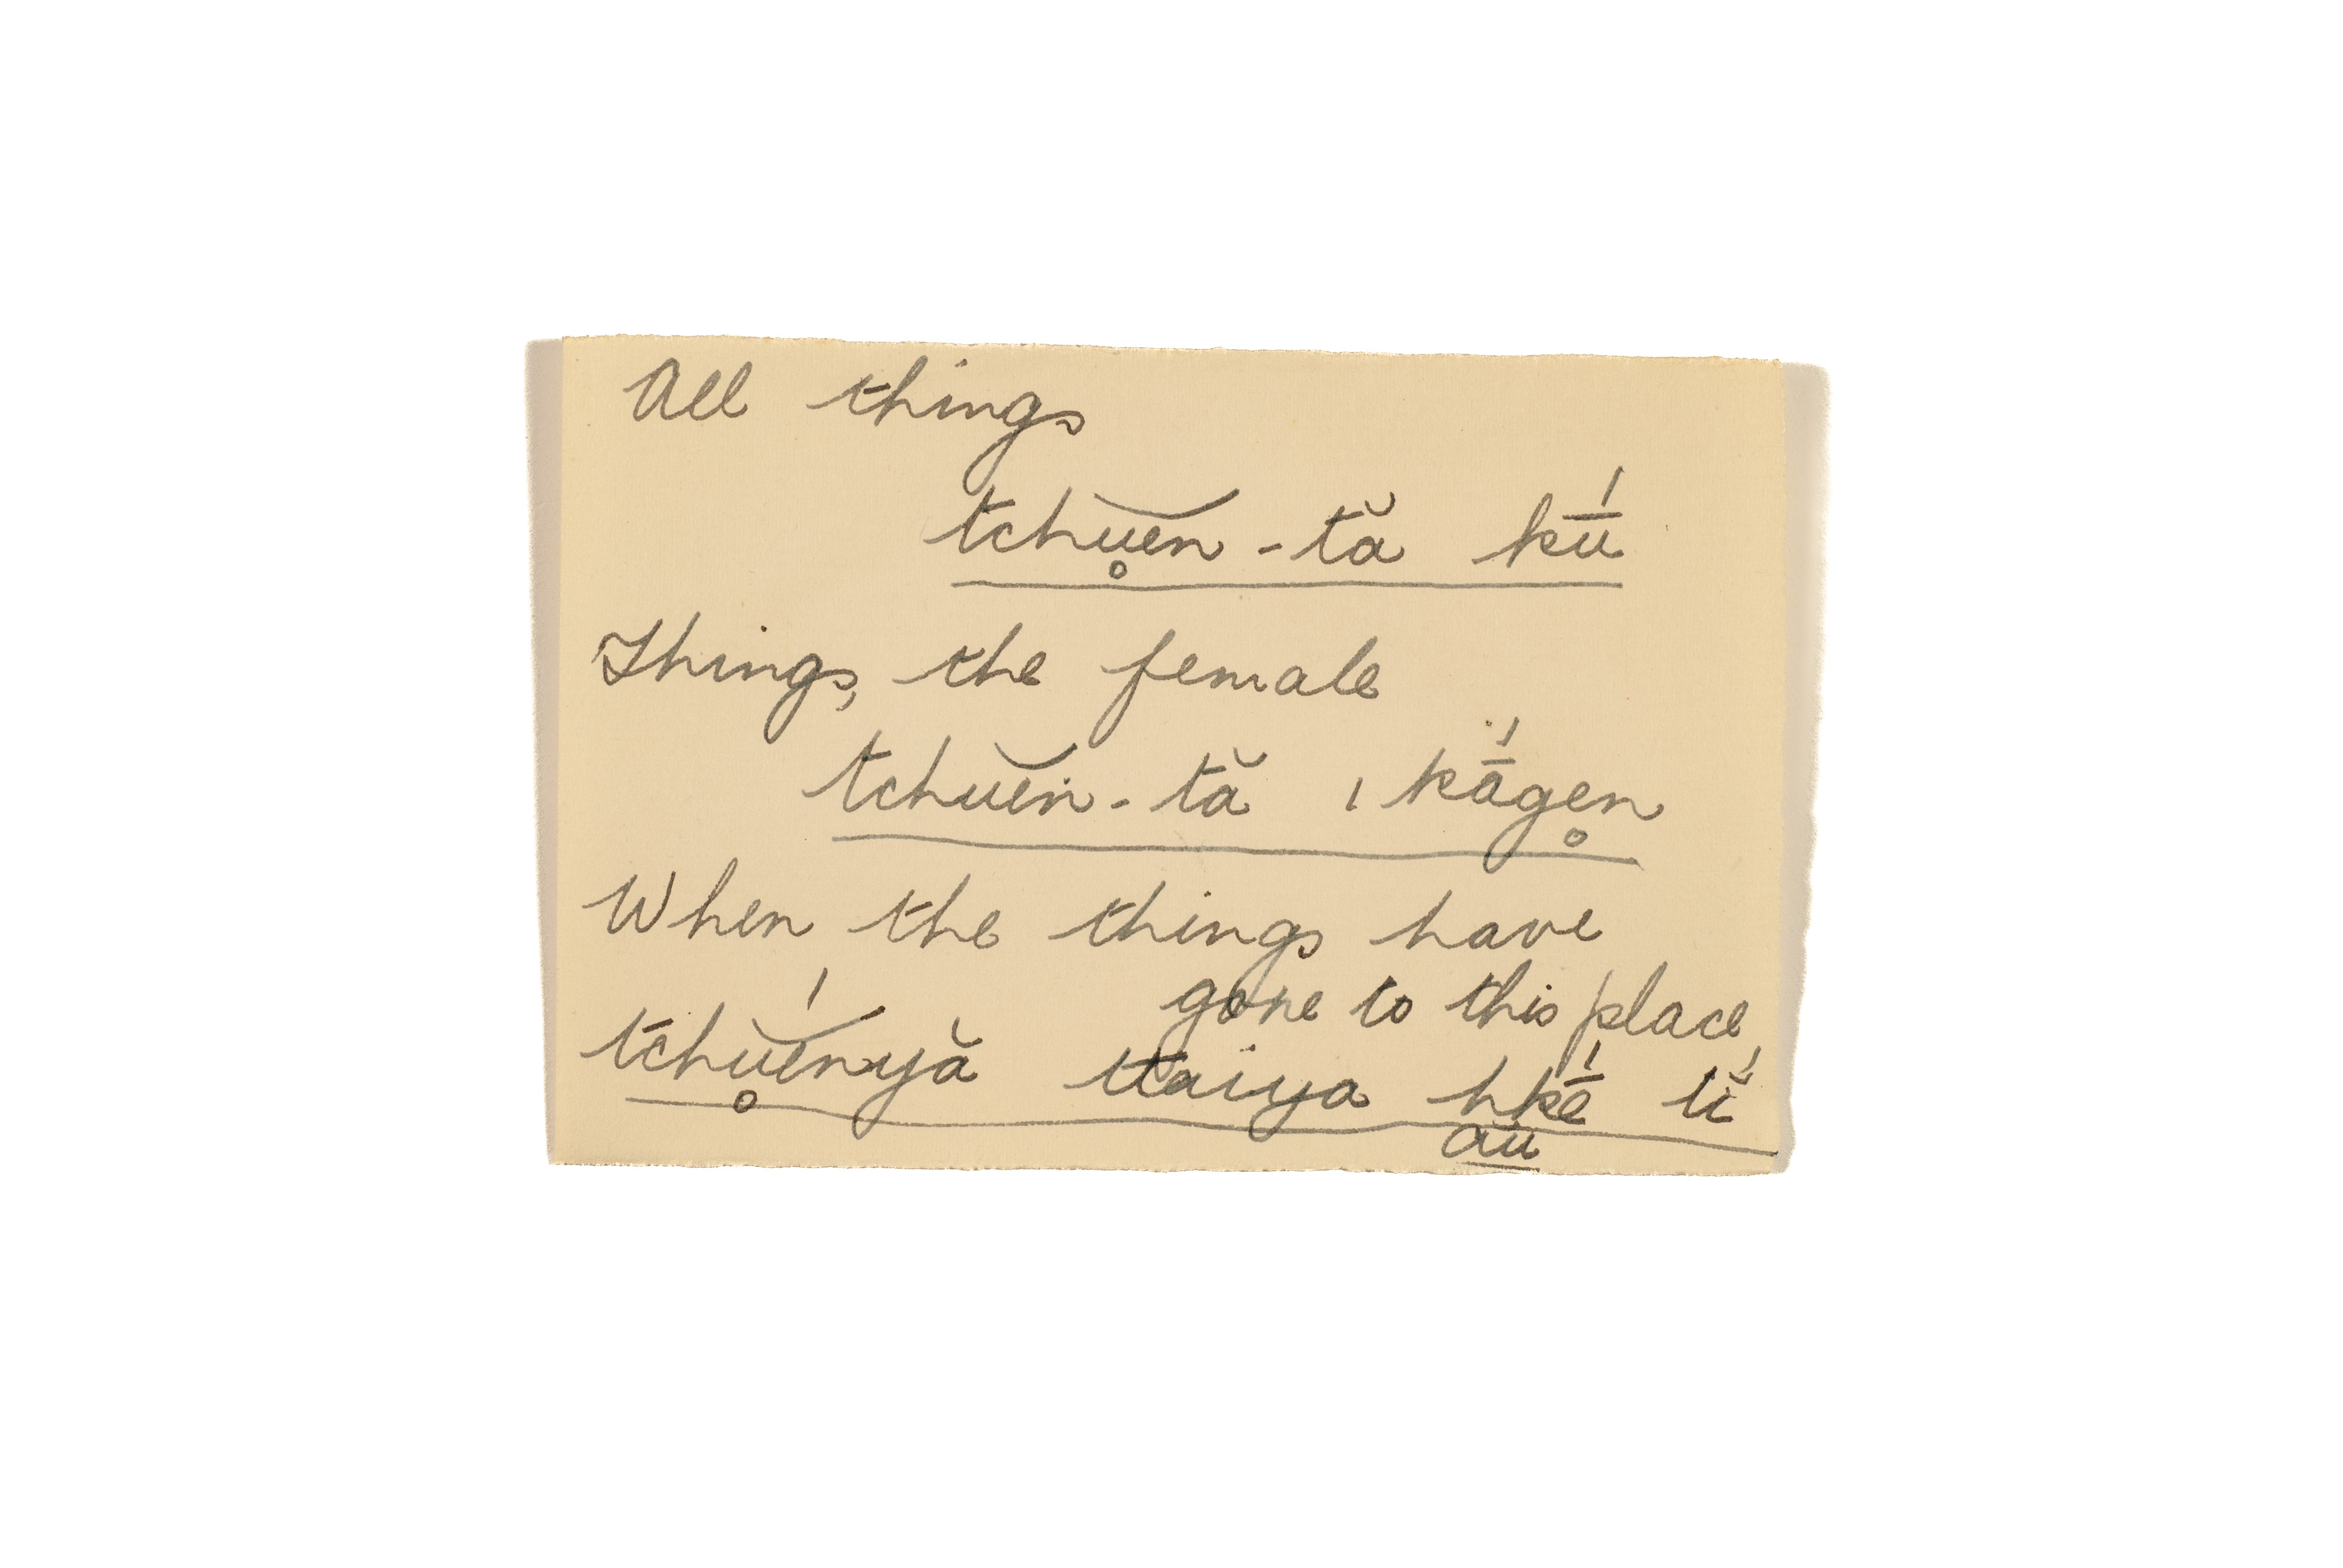 All things
tchu̥͝en - tă kū́
Things, the female
tchu͝en - tă ı kā́ge̥n
When the things have
gone to this place,
tchu̥͝enyă ttaiya hkḗ ŭ́
aū